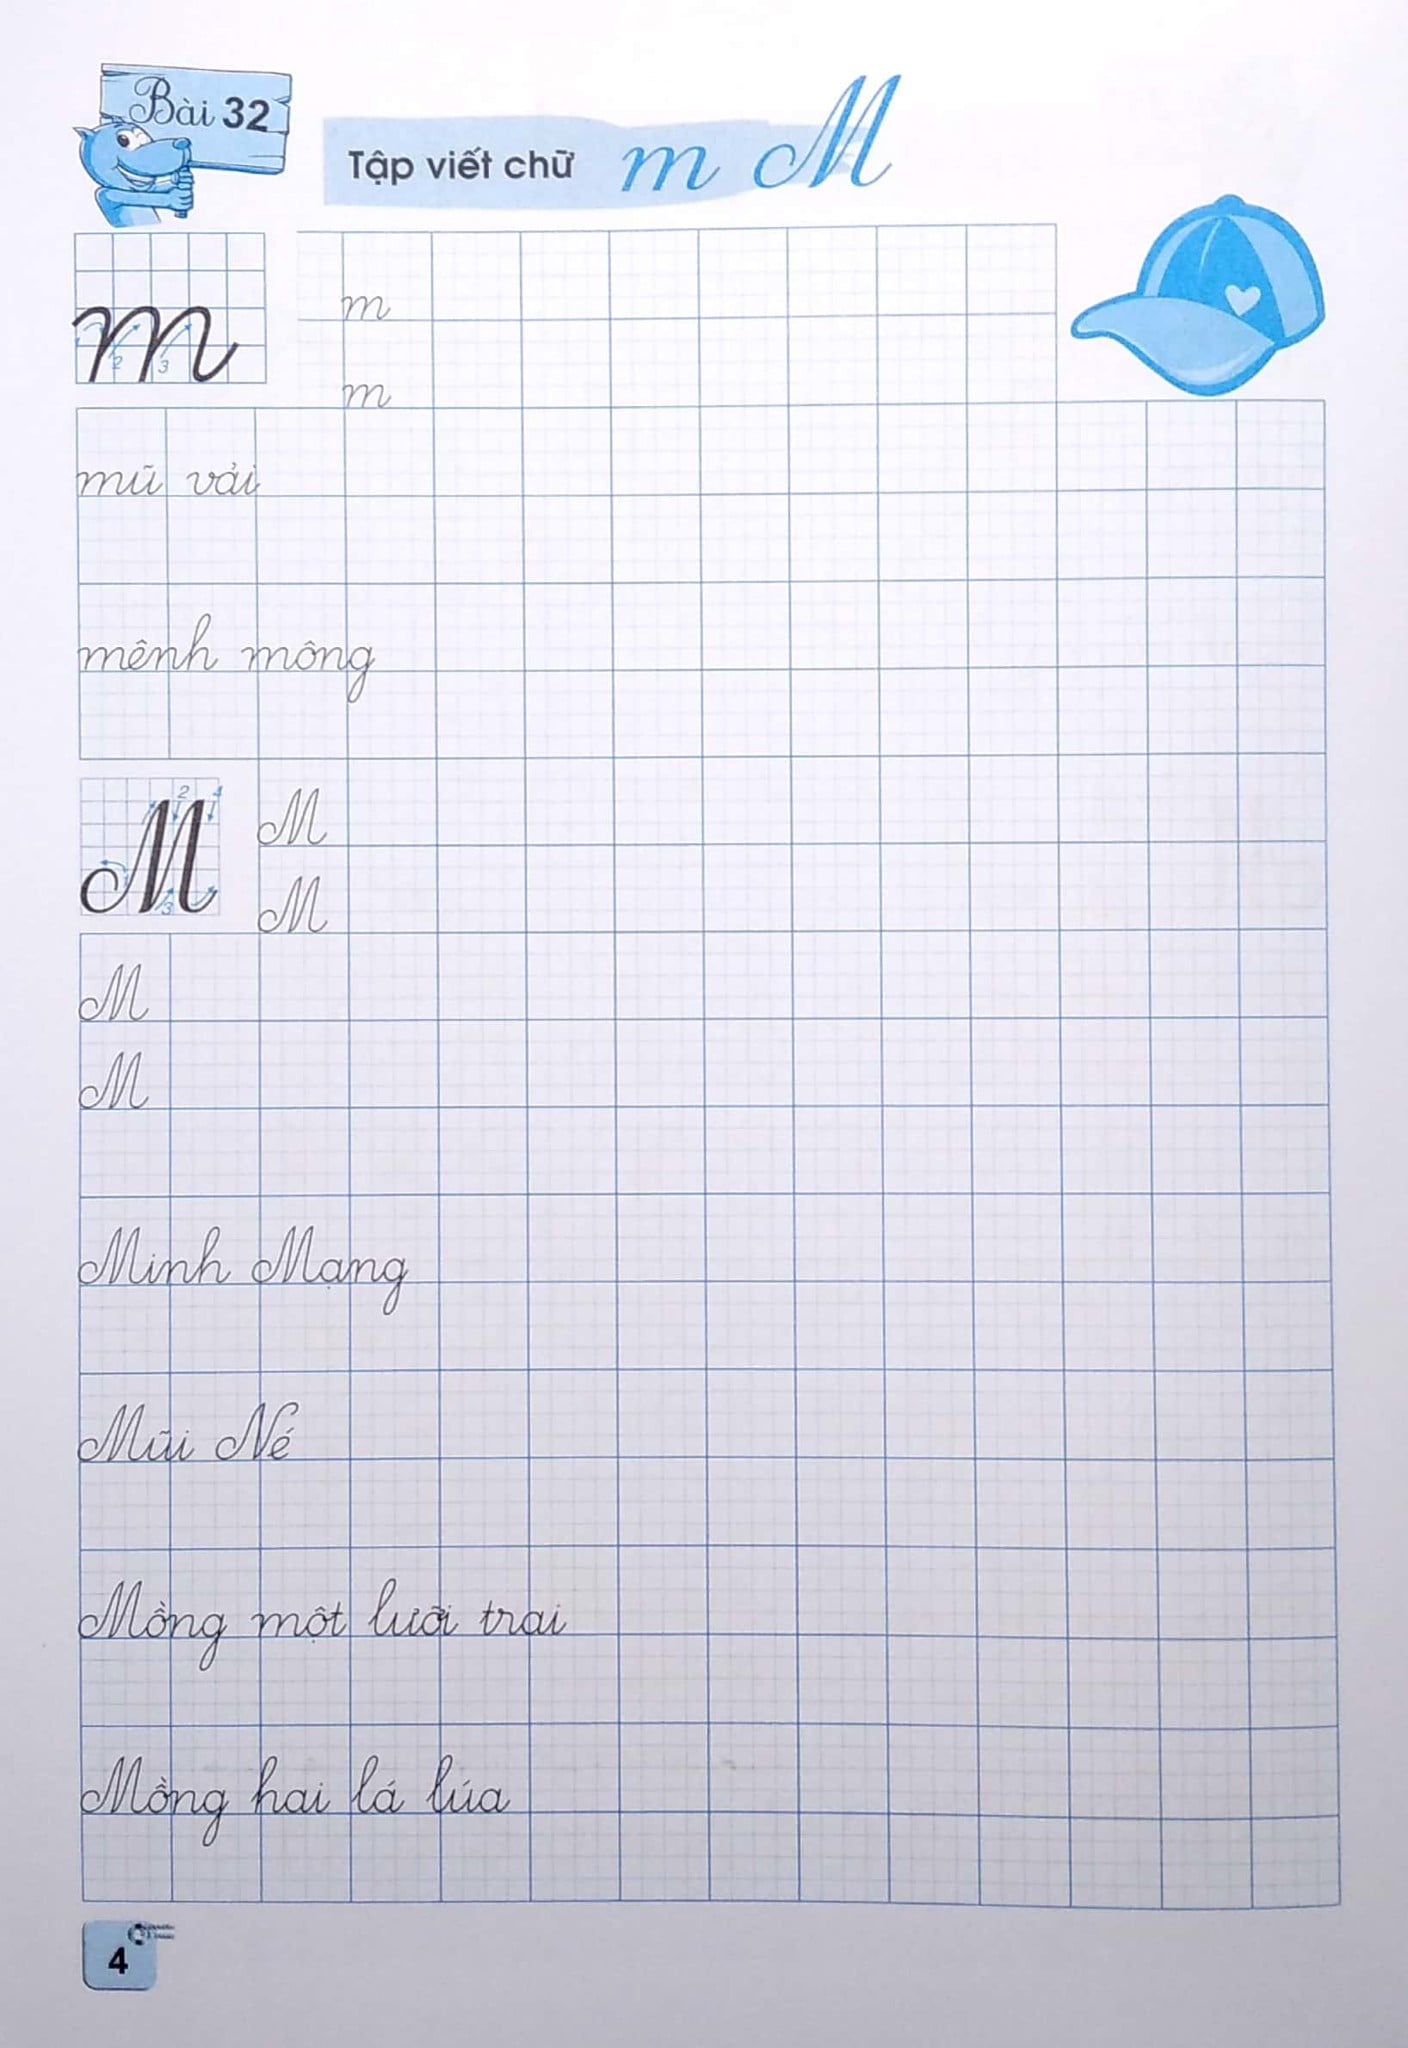 Bài 32
Tập viết chữ m M
m
2 3
m
m
mũ vải
mênh mông
2 4
M
3
M
M
M
M
Minh Mạng
Mũi Né
Mồng một lưỡi trai
Mồng hai lá lúa
4